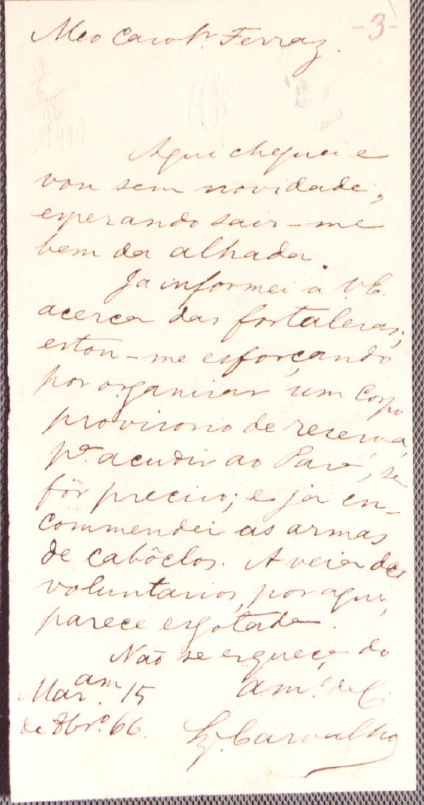 -3-
Meo Caro Sr. Ferraz.
Aqui cheguei e
vou sem novidade,
esperando sair-me
bem da alhada.
Ja informei a V.E.
acerca das fortalezas;
estou-me esforçando
por organisar um corpo
provisorio de reserva,
pa. acudir ao Pará, se
fôr preciso; e já en-
commendei as armas
de cabôclos. A veia dos
voluntarios, por aqui,
parece esgotada.
Não se esqueça do
Maram. 15 am.o de C.
de 8bro. 66. Carvalho